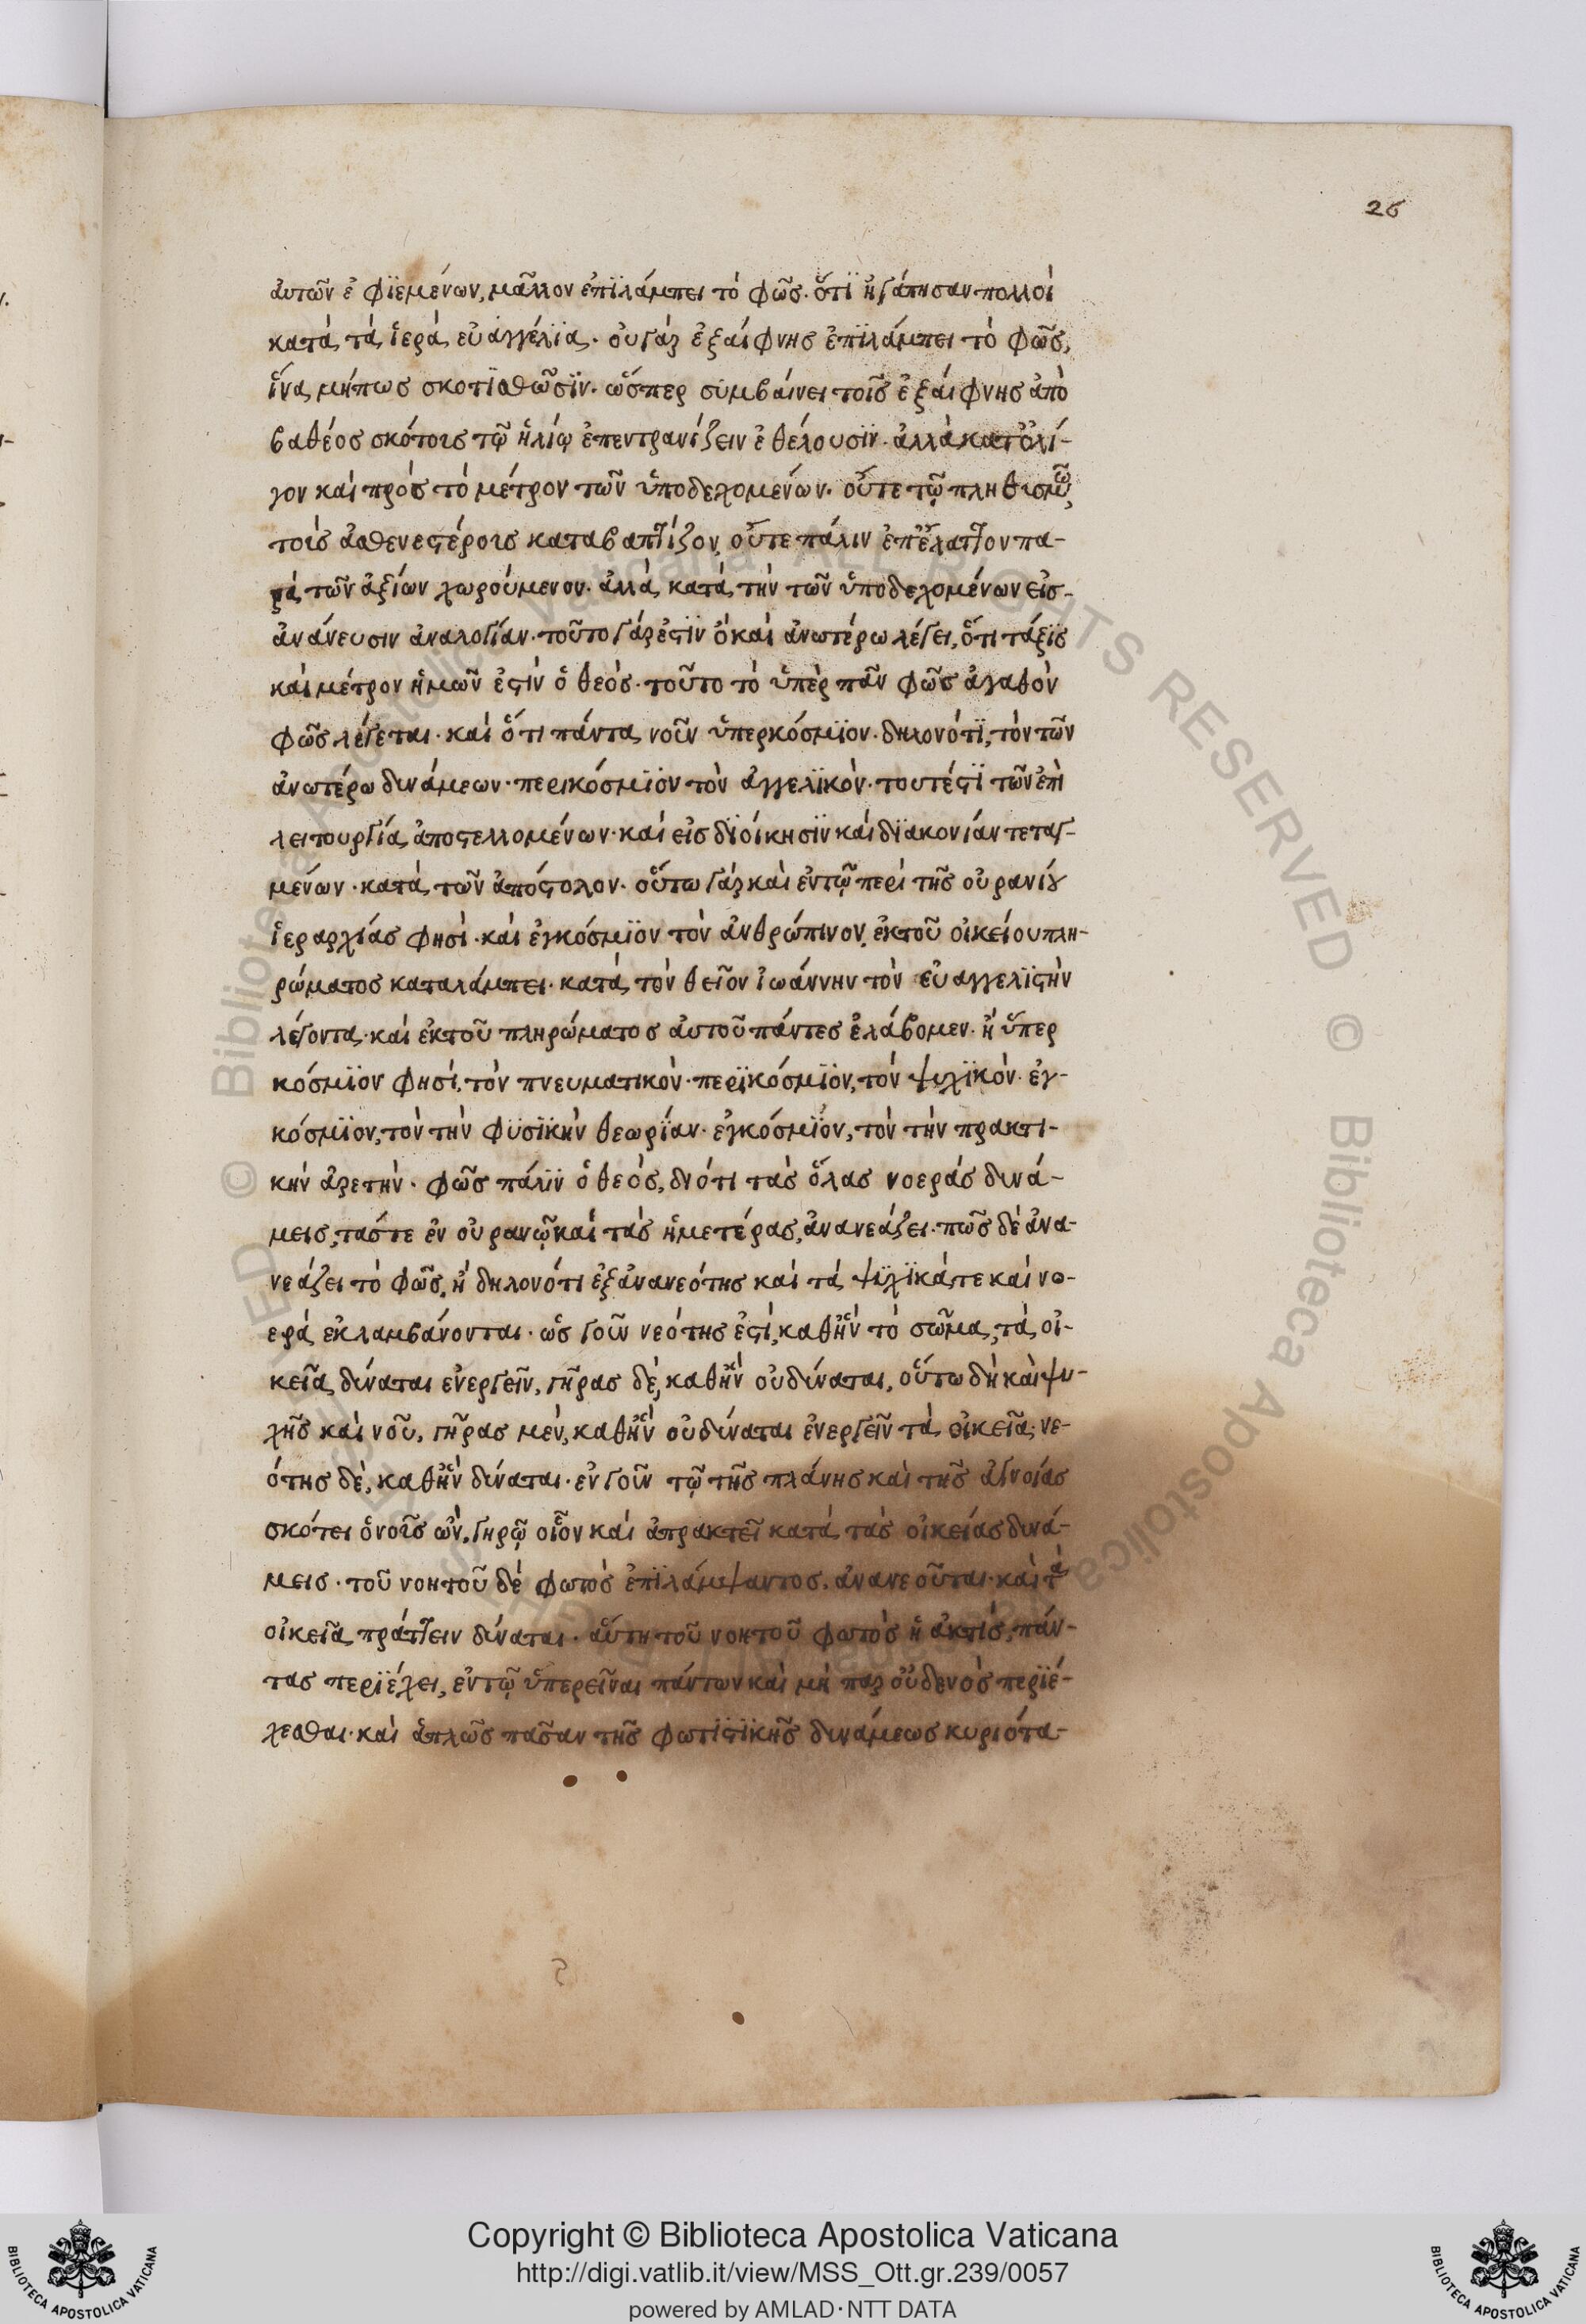 26
αὐτῶν ἐφϊεμένων, μᾶλλον ἐπϊλάμπει τὸ φῶς· ὅτϊ ἠγάπησαν πολλοὶ
κατὰ τὰ ἱερὰ εὐαγγέλϊα· οὐ γὰρ ἐξαίφνης ἐπϊλάμπει τὸ φῶς,
ἵνα μήπως σκοτϊσθῶσϊν· ὥσπερ συμβαίνει τοῖς ἐξαίφνης ἀπὸ
βαθέος σκότους τῷ ἡλίῳ ἐπεντρανίζειν ἐθέλουσϊν· ἀλλὰ κατ' ὀλί-
γον καὶ πρὸς τὸ μέτρον τῶν ὑποδεχομένων· οὔτε τῷ πληθυσμῷ
τοῖς ἀσθενεστέροις καταβαπτίζον, οὔτε πάλιν ἐπ' ἔλαττον πα-
ρὰ τῶν ἀξίων χωρούμενον· ἀλλὰ κατὰ τὴν τῶν ὑποδεχομένων εἰσ-
ανάνευσιν ἀναλογίαν· τοῦτο γάρ ἐστϊν ὃ καὶ ἀνωτέρω λέγει, ὅτι τάξϊς
καὶ μέτρον ἡμῶν ἐστὶν ὁ θεός· τοῦτο τὸ ὑπὲρ πᾶν φῶς ἀγαθὸν
φῶς λέγεται· καὶ ὅτι πάντα νοῦν ὑπερκόσμϊον· δηλονότϊ, τὸν τῶν
ἀνωτέρω δυνάμεων· περικόσμϊον τὸν ἀγγελϊκὸν· τουτέστϊ τῶν ἐπὶ
λειτουργίᾳ ἀποστελλομένων· καὶ εἰς δϊοίκησϊν καὶ δϊακονίαν τεταγ-
μένων· κατὰ τῶν ἀπόστολον· οὕτω γὰρ καὶ ἐν τῷ περὶ τῆς οὐρανίου
ἱεραρχίας φησὶ· καὶ ἐγκόσμϊον τὸν ἀνθρώπινον, ἐκ τοῦ οἰκείου πλη-
ρώματος καταλάμπει· κατὰ τὸν θεῖον ἰωάννην τὸν εὐαγγελϊστὴν
λέγοντα· καὶ ἐκ τοῦ πληρώματος αὐτοῦ πάντες ἐλάβομεν· ἢ ὑπερ
κόσμϊον φησί, τὸν πνευματικὸν· περϊκόσμϊον, τὸν ψυχϊκόν· ἐγ-
κόσμϊον, τὸν τὴν φϋσϊκὴν θεωρΐαν· ἐγκόσμϊον, τὸν τὴν πρακτι-
κὴν ἀρετὴν· φῶς πάλϊν ὁ θεός, διότι τὰς ὅλας νοερὰς δυνά-
μεις, τάς τε ἐν οὐρανῷ καὶ τὰς ἡμετέρας, ἀνανεάζει· πῶς δὲ ἀνα-
νεάζει τὸ φῶς, ἢ δηλονότι ἐξ ἀνανεότης καὶ τὰ ψυχϊκά τε καὶ νο-
ερὰ ἐκλαμβάνονται· ὡς γοῦν νεότης ἐστί, καθ' ἣν τὸ σῶμα, τὰ οἰ-
κεῖα δύναται ἐνεργεῖν, γῆρας δέ, καθ' ἣν οὐ δύναται, οὕτω δὴ καὶ ψυ-
χῆς καὶ νοῦ, γῆρας μέν, καθ' ἣν οὐ δύναται ἐνεργεῖν τὰ οἰκεῖα· νε-
ότης δὲ, καθ' ἣν δύναται· ἐν γοῦν τῷ τῆς πλάνης καὶ τῆς ἀγνοίας
σκότει ὁ νοῦς ὢν, γηρᾷ οἷον καὶ ἀπρακτεῖ κατὰ τὰς οἰκείας δυνά-
μεις· τοῦ νοητοῦ δὲ φωτὸς ἐπϊλάμψαντος, ἀνανεοῦται· καὶ τὰ
οἰκεῖα πράττειν δύναται· αὕτη τοῦ νοητοῦ φωτὸς ἡ ἀκτίς, πάν-
τας περϊέχει, ἐν τῷ ὑπερεῖναι πάντων καὶ μὴ παρ' οὐδενὸς περϊέ-
χεσθαι· καὶ ἁπλῶς πᾶσαν τῆς φωτϊστϊκῆς δυνάμεως κυριότα-
Copyright © Biblioteca Apostolica Vaticana
http://digi.vatlib.it/view/MSS_Ott.gr.239/0057
powered by AMLAD·NTT DATA